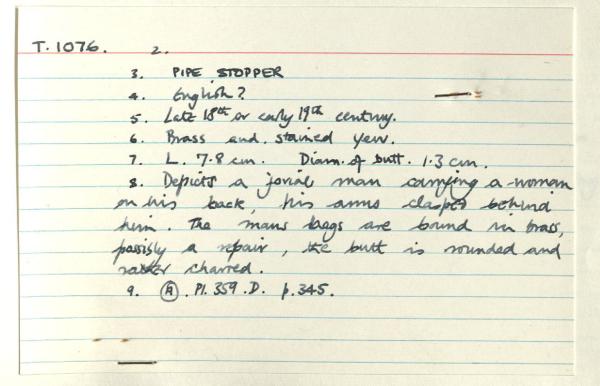 T. 1076. 2.
3. PIPE STOPPER
4. English?
5. Late 18th or early 19th century.
6. Brass and stained yew.
7. L. 7.8 cm. Diam. of butt. 1.3 cm.
8. Depicts a jovial man carrying a woman
on his back, his arms clasped behind
him. The mans legs are bound in brass,
possibly a repair, the butt is rounded and
rather charred.
9. (A). Pl. 359. D. p. 345.